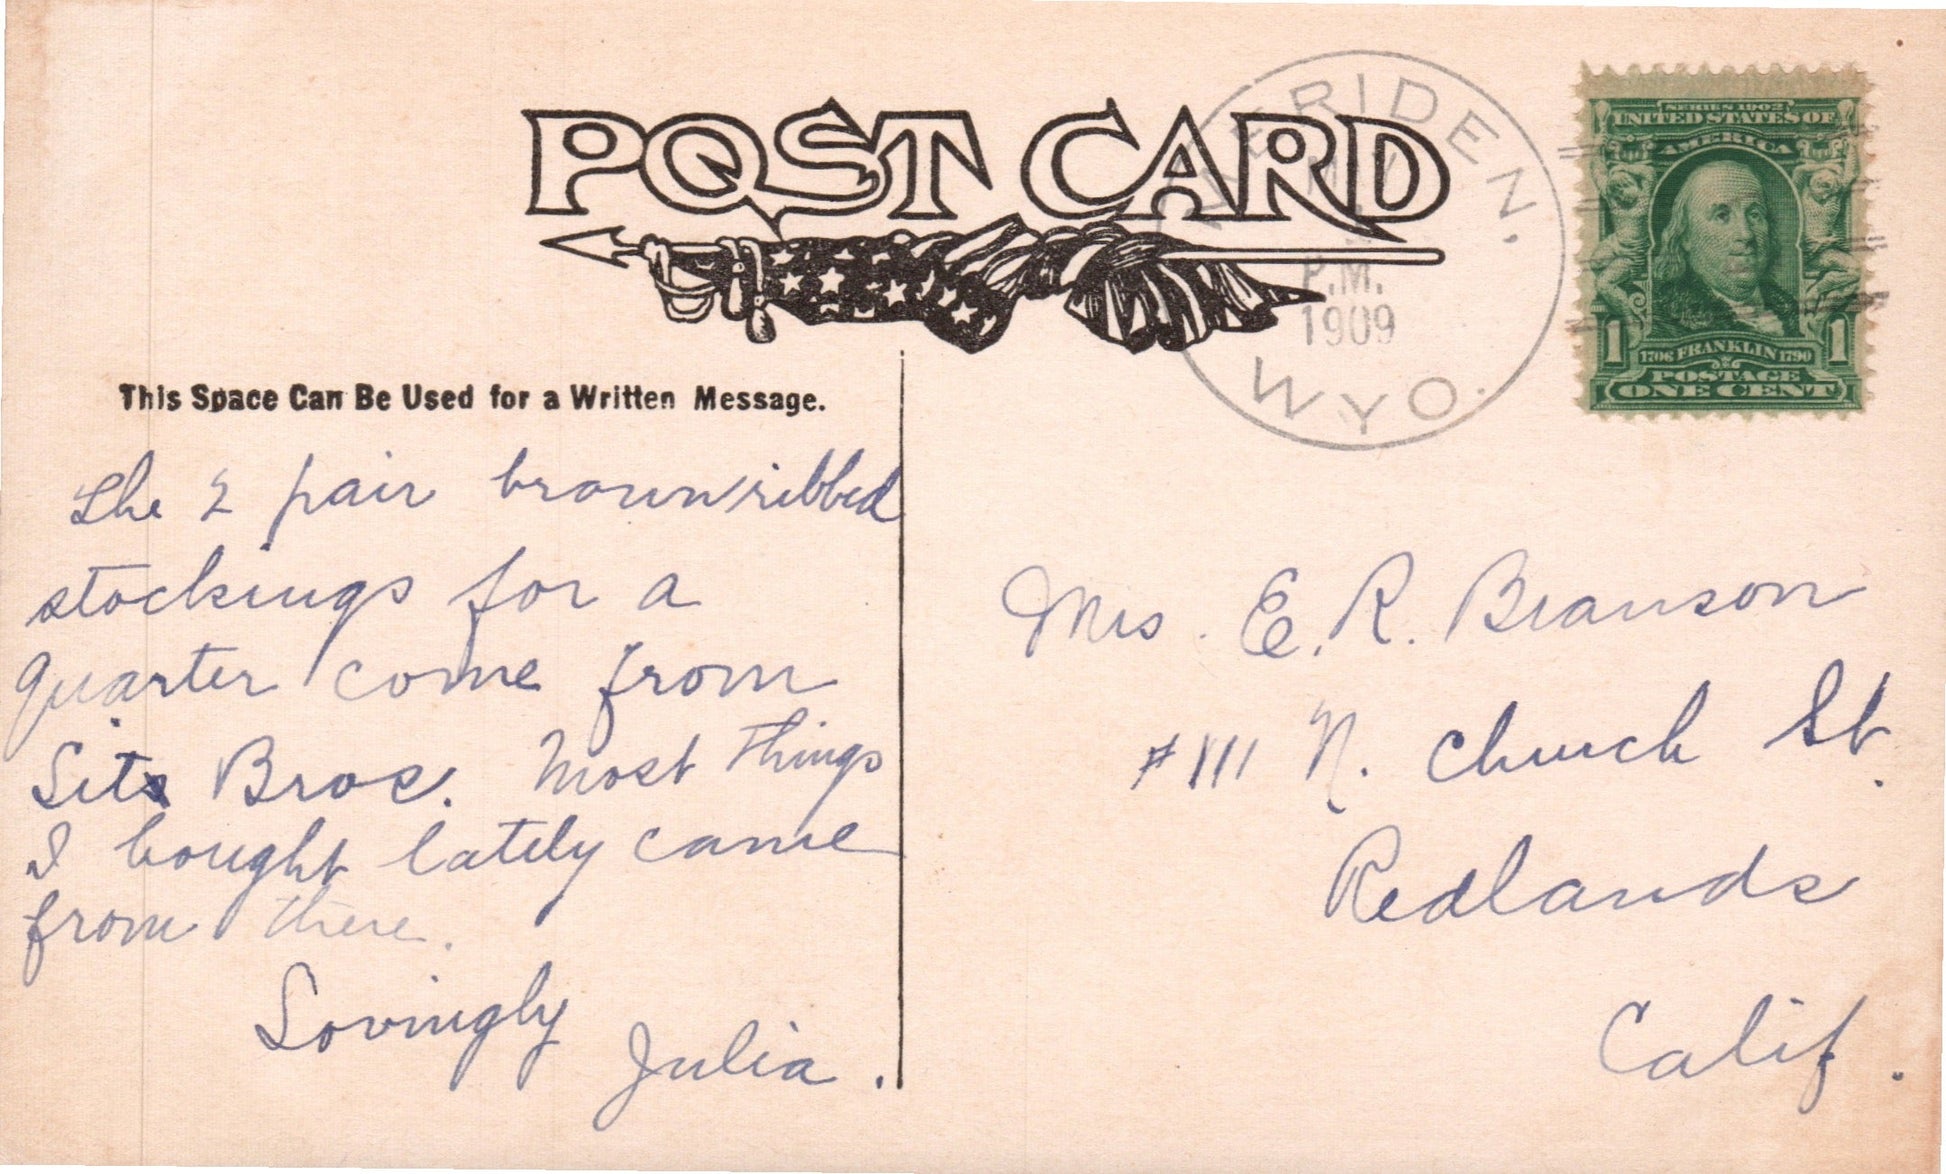 POST CARD
MERIDEN,
P.M.
1909
WYO.
SERIES 1902
UNITED STATES OF
AMERICA
1 1706 FRANKLIN 1790 1
POSTAGE
ONE CENT
This Space Can Be Used for a Written Message.
The 2 pair brown ribbed
stockings for a
quarter come from
Sits Bros. Most things
I bought lately came
from there.
Lovingly
Julia.
Mrs. E. R. Branson
#111 N. Church St.
Redlands
Calif.